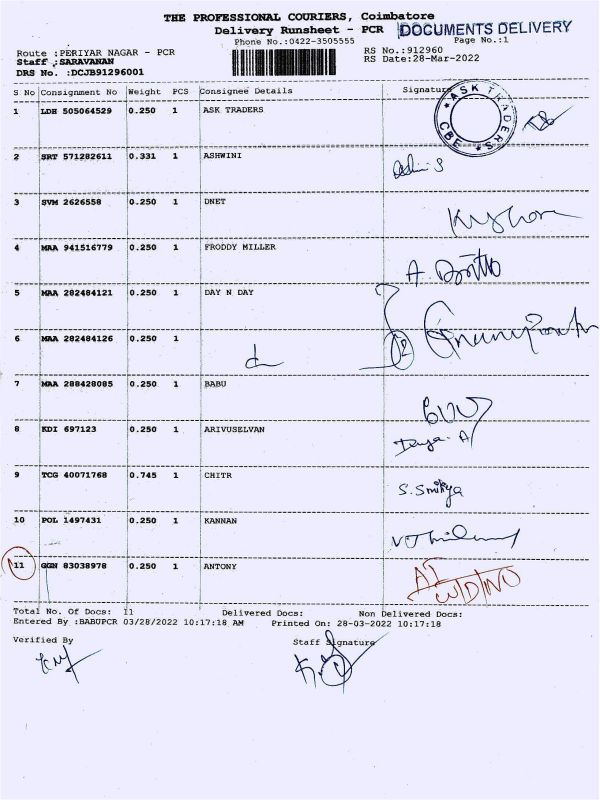 THE PROFESSIONAL COURIERS, Coimbatore
Delivery Runsheet - PCR
DOCUMENTS DELIVERY
Phone No.:0422-3505555
Page No.:1
Route :PERIYAR NAGAR - PCR
RS No.:912960
Staff :SARAVANAN
RS Date:28-Mar-2022
DRS No. :DCJB91296001
S No Consignment No Weight PCS Consignee Details Signature
1 LDH 505064529 0.250 1 ASK TRADERS
ASK TRADERS CBE
2 SRT 571282611 0.331 1 ASHWINI
3 SVM 2626558 0.250 1 DNET
4 MAA 941516779 0.250 1 FRODDY MILLER
5 MAA 282484121 0.250 1 DAY N DAY
6 MAA 282484126 0.250 1
7 MAA 288428085 0.250 1 BABU
8 KDI 697123 0.250 1 ARIVUSELVAN
9 TCG 40071768 0.745 1 CHITR S. Smikya
10 POL 1497431 0.250 1 KANNAN
11 GGN 83038978 0.250 1 ANTONY
Total No. Of Docs: 11 Delivered Docs: Non Delivered Docs:
Entered By :BABUPCR 03/28/2022 10:17:18 AM Printed On: 28-03-2022 10:17:18
Verified By Staff Signature